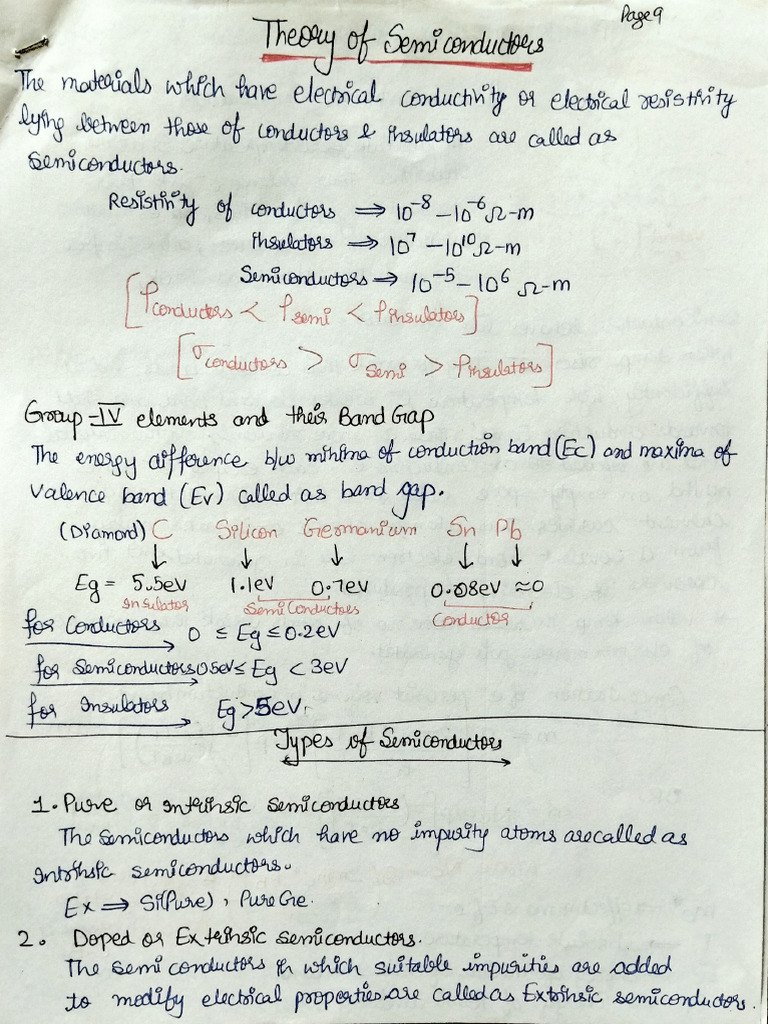 Page 9
Theory of Semiconductors
The materials which have electrical conductivity or electrical resistivity
lying between those of conductors & insulators are called as
semiconductors.
Resistivity of conductors ⇒ 10⁻⁸ – 10⁻⁶ Ω-m
insulators ⇒ 10⁷ – 10¹⁰ Ω-m
Semiconductors ⇒ 10⁻⁵ – 10⁶ Ω-m
[ρconductors < ρsemi < ρinsulators]
[σconductors > σsemi > ρinsulators]
Group-IV elements and their Band Gap
The energy difference b/w minima of conduction band (Ec) and maxima of
valence band (Ev) called as band gap.
(Diamond) C Silicon Germanium Sn Pb
↓ ↓ ↓ ↓ ↓
Eg = 5.5eV 1.1eV 0.7eV 0.08eV ≈0
Insulator Semiconductors Conductor
for Conductors 0 ≤ Eg ≤ 0.2eV
for Semiconductors 0.5eV ≤ Eg < 3eV
for Insulators Eg > 5eV.
Types of Semiconductors
1. Pure or intrinsic semiconductors
The semiconductors which have no impurity atoms are called as
intrinsic semiconductors.
Ex ⇒ Si(Pure), Pure Ge.
2. Doped or Extrinsic semiconductors.
The semiconductors in which suitable impurities are added
to modify electrical properties are called as Extrinsic semiconductors.